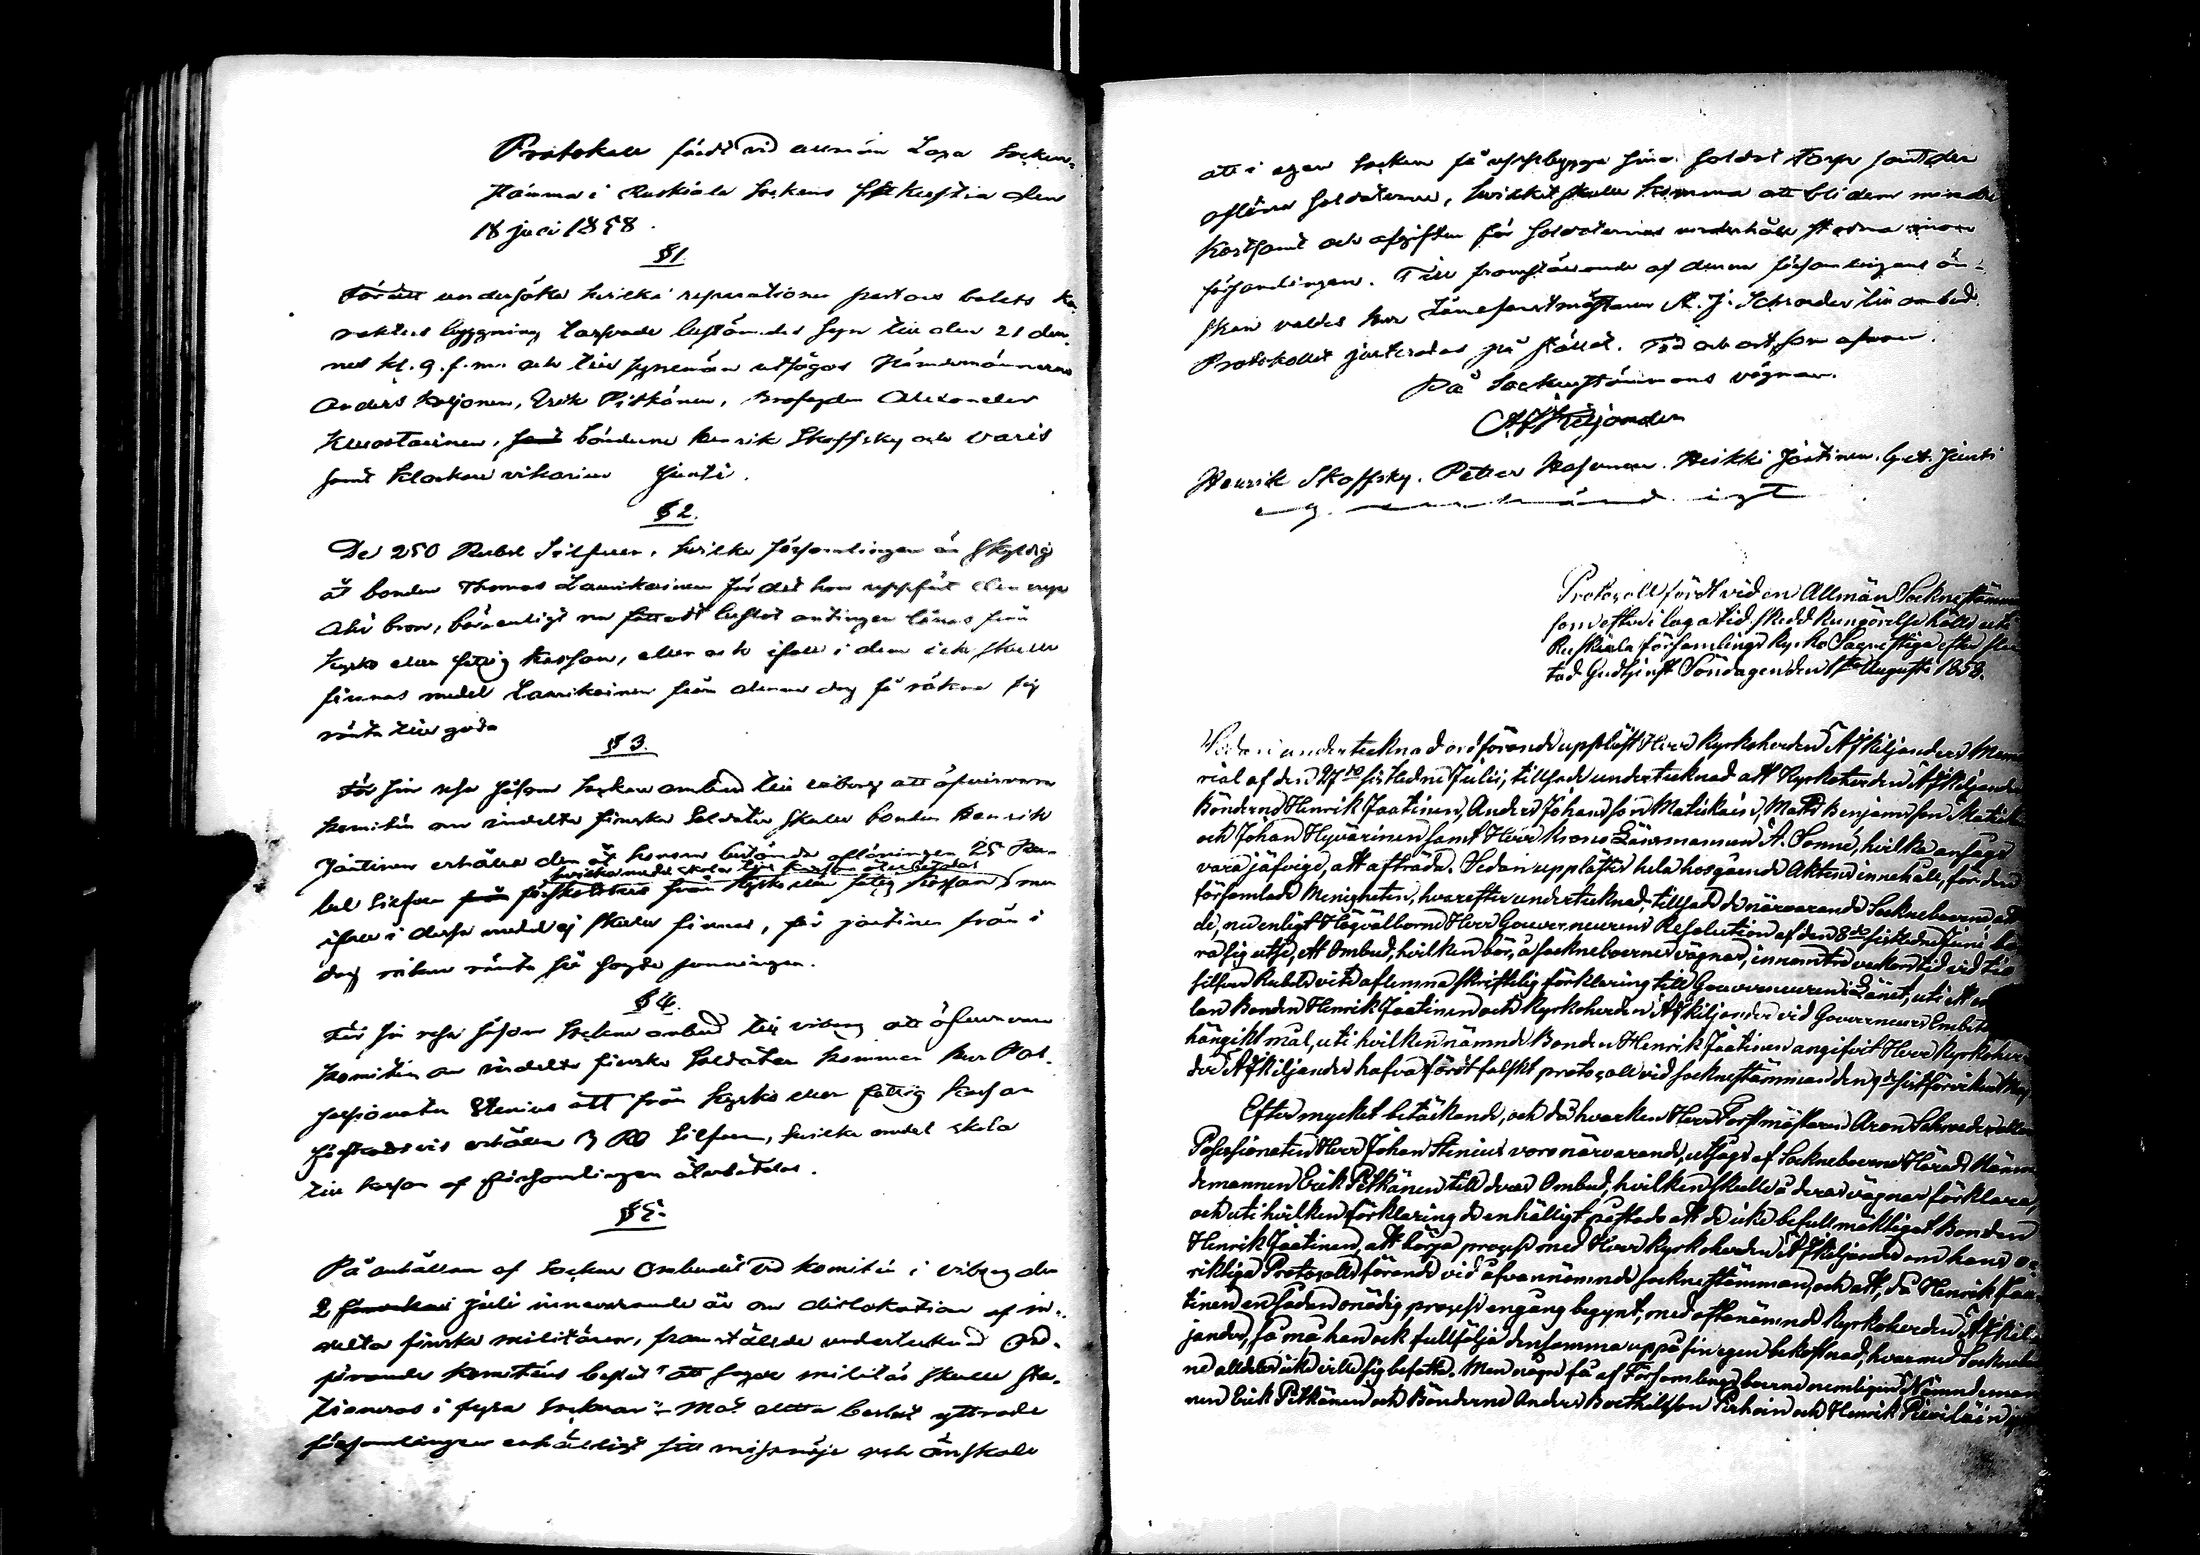 Protokoll fördt vid allmän Laga Socken-
stämma i Ruskiala Sockens Sakristia den
18 juli 1858.
§1.
För att undersöka hvilka reparationer pastors bolets ka-
rakters byggning tarfvade bestämdes syn till den 21 den-
nes kl. 9. f.m. och till synemän utsågos Nämndemännerne
Anders Koljonen, Erik Pitkänen, Alexander
samt bönderne Henrik Skoffsky och Varis
samt Klockare vikarien Junti.
§2.
De 250 Rubel Silfver, hvilka församlingen är skyldig
åt bonden Thomas Laurikainen för det han uppfört
bron, bör enligt nu fattadt beslut antingen lånas från
kyrko eller fattig kassan, eller och ifall i dem icke skulle
finnas medel Laurikainen från denna dag få räkna sig
ränta till godo
§3.
För sin resa såsom Socken ombud till Viborg att öfvervara
komitén om indelta finska Soldater skulle bonden Henrik
Jäätinen erhålla den åt honom bestämda aflöningen 25 Ru-
hvilka medel skola till kassan återbetalas
bel Silfver från förskottsvis från kyrko eller fattig kassan, men
ifall i dessa medel ej skulle finnas, får Jäätinen från i
dag räkna ränta på sagde summingen.
§4.
För sin resa såsom Socken ombud till Viborg att öfvervara
komitén om indelta finska Soldater kommer herr Pos-
sessionaten Stenius att från kyrko eller fattig kassan
förskottsvis erhålla Silfver, hvilka medel skola
till kassan af församlingen återbetalas.
§5.
På anhållan af Socken Ombudet vid komitén i Viborg den
2 juli innevarande år om dislokation af in-
delta finska militären, framställde undertecknad Ord-
förande komiténs beslut "att sagde militär skulle sta-
tioneras i fyra Socknar" - Mot detta beslut yttrade
församlingen enhälligt sitt missnöje och önskade
att i egen Socken få uppbygga sina Soldat torp samt der
aflöna Soldaterne, hvilket skulle komma att bli dem mindre
kostsamt och afgiften för Soldaternas underhåll stadna inom
församlingen. Till framförande af denna församlingens ön-
skan valdes herr Länsforstmästaren A. J. Schroeder till ombud.
Protokollet justerades på stället. Tid och ort som ofvan.
På Sockenstämmans vägnar.
A F Kiljander
Henrik Skoffsky. Petter Hasunen. Heikki Jäätinen. G. A. Junti
Protocoll fördt vid en Allmän Sockne stämma
som efter i laga tid skedd kungörelse hölls uti
Ruskiala församlings kyrko Sacristiga efter slu-
tad Gudstjenst Söndagen den 1sta Augusti 1858.
Sedan undertecknad ordförande uppläst Herr Kyrkoherden A F Kiljanders Memo
rial af den 27de sistledne Julii, tillsade undertecknad att Kyrkoherden A F Kiljander
Bönderne Henrik Jaatinen, Anders Johansson Matikain, Matts Benjaminsson Matikain
och Johan Hyvärinen samt Herr Krono Länsmannen A. Sonné, hvilka ansågs
vara jäfvige, att afträda. Sedan upplästes hela hosgående Aktens innehåll, för den
församlade Menigheten, hvarefter undertecknad tillsade de närvarande Sockneboerne, att
de, nu enligt Högvälborne Herr Gouverneurens Resolution af den 8de sistledne Junii bör
ra sig utse ett Ombud, hvilken bör, å socknebernes vägnar, innom tre veckors tid vid tio
silfver Rubels vite aflemna skriftelig förklaring till Gouverneuren i Länet, uti ett em
lan Bonden Henrik Jäatinen och Kyrkoherden A F Kiljander vid Gouverneurs Embetet
hängikt mål, uti hvilken nämnde Bonden Henrik Jäatinen angifvit Herr Kyrkoher-
den A F Kiljander hafva fördt falskt protocoll vid sockne stämman den 9de sistförvikne Maj
Efter mycket betänkande, och då hvarken Herr Forstmästaren Aron Schroeder eller
Possessionaten Herr Johan Stenius voro närvarande, utsågs af Socknebоerne Härads Nämn
demannen Erik Pitkänen till deras Ombud, hvilken skulle å deras vägnar förklara,
och uti hvilken förklaring de enhälligt påstodo att de icke befullmäktigat Bonden
Henrik Jäatinen, att börja process med Herr Kyrkoherden A F Kiljander om hans o-
riktiga Protocolls förande vid ofvannämnde sockne stämman, och att, då Henrik Jaa-
tinen en sådan onödig process engång begynt, med oftanämnde Kyrkoherden A F Kil-
jander, så må han ock fullfölja densamma uppå sin egen bekostnad, hvarmed Sockneboer
ne alldeles icke ville sig befatta. Men några få af Församlings boerne nemligen Nämndeman
nen Erik Pitkänen och Bönderne Anders Berthilsson Pirhoin och Henrik Pieviläin